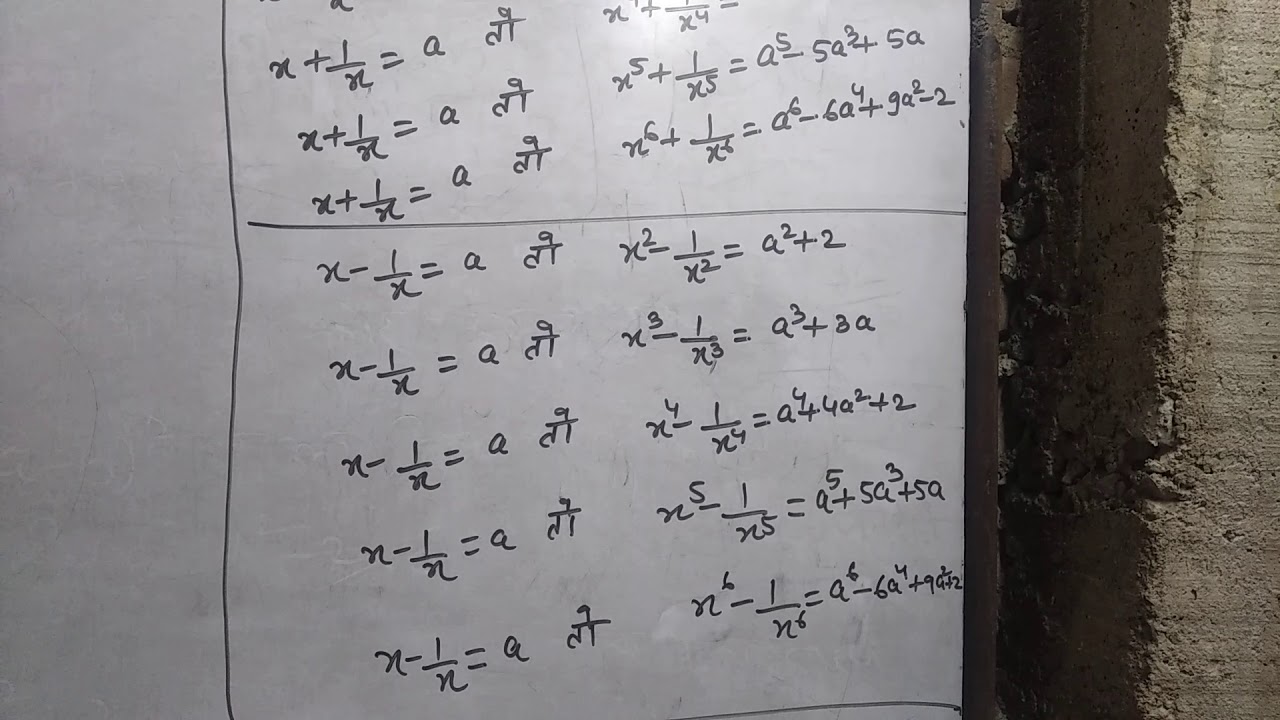 x + 1/x = a तो x⁵ + 1/x⁵ = a⁵ - 5a³ + 5a
x + 1/x = a तो x⁶ + 1/x⁶ = a⁶ - 6a⁴ + 9a² - 2
x + 1/x = a तो
x - 1/x = a तो x² - 1/x² = a² + 2
x - 1/x = a तो x³ - 1/x³ = a³ + 3a
x - 1/x = a तो x⁴ - 1/x⁴ = a⁴ + 4a² + 2
x - 1/x = a तो x⁵ - 1/x⁵ = a⁵ + 5a³ + 5a
x - 1/x = a तो x⁶ - 1/x⁶ = a⁶ - 6a⁴ + 9a² + 2